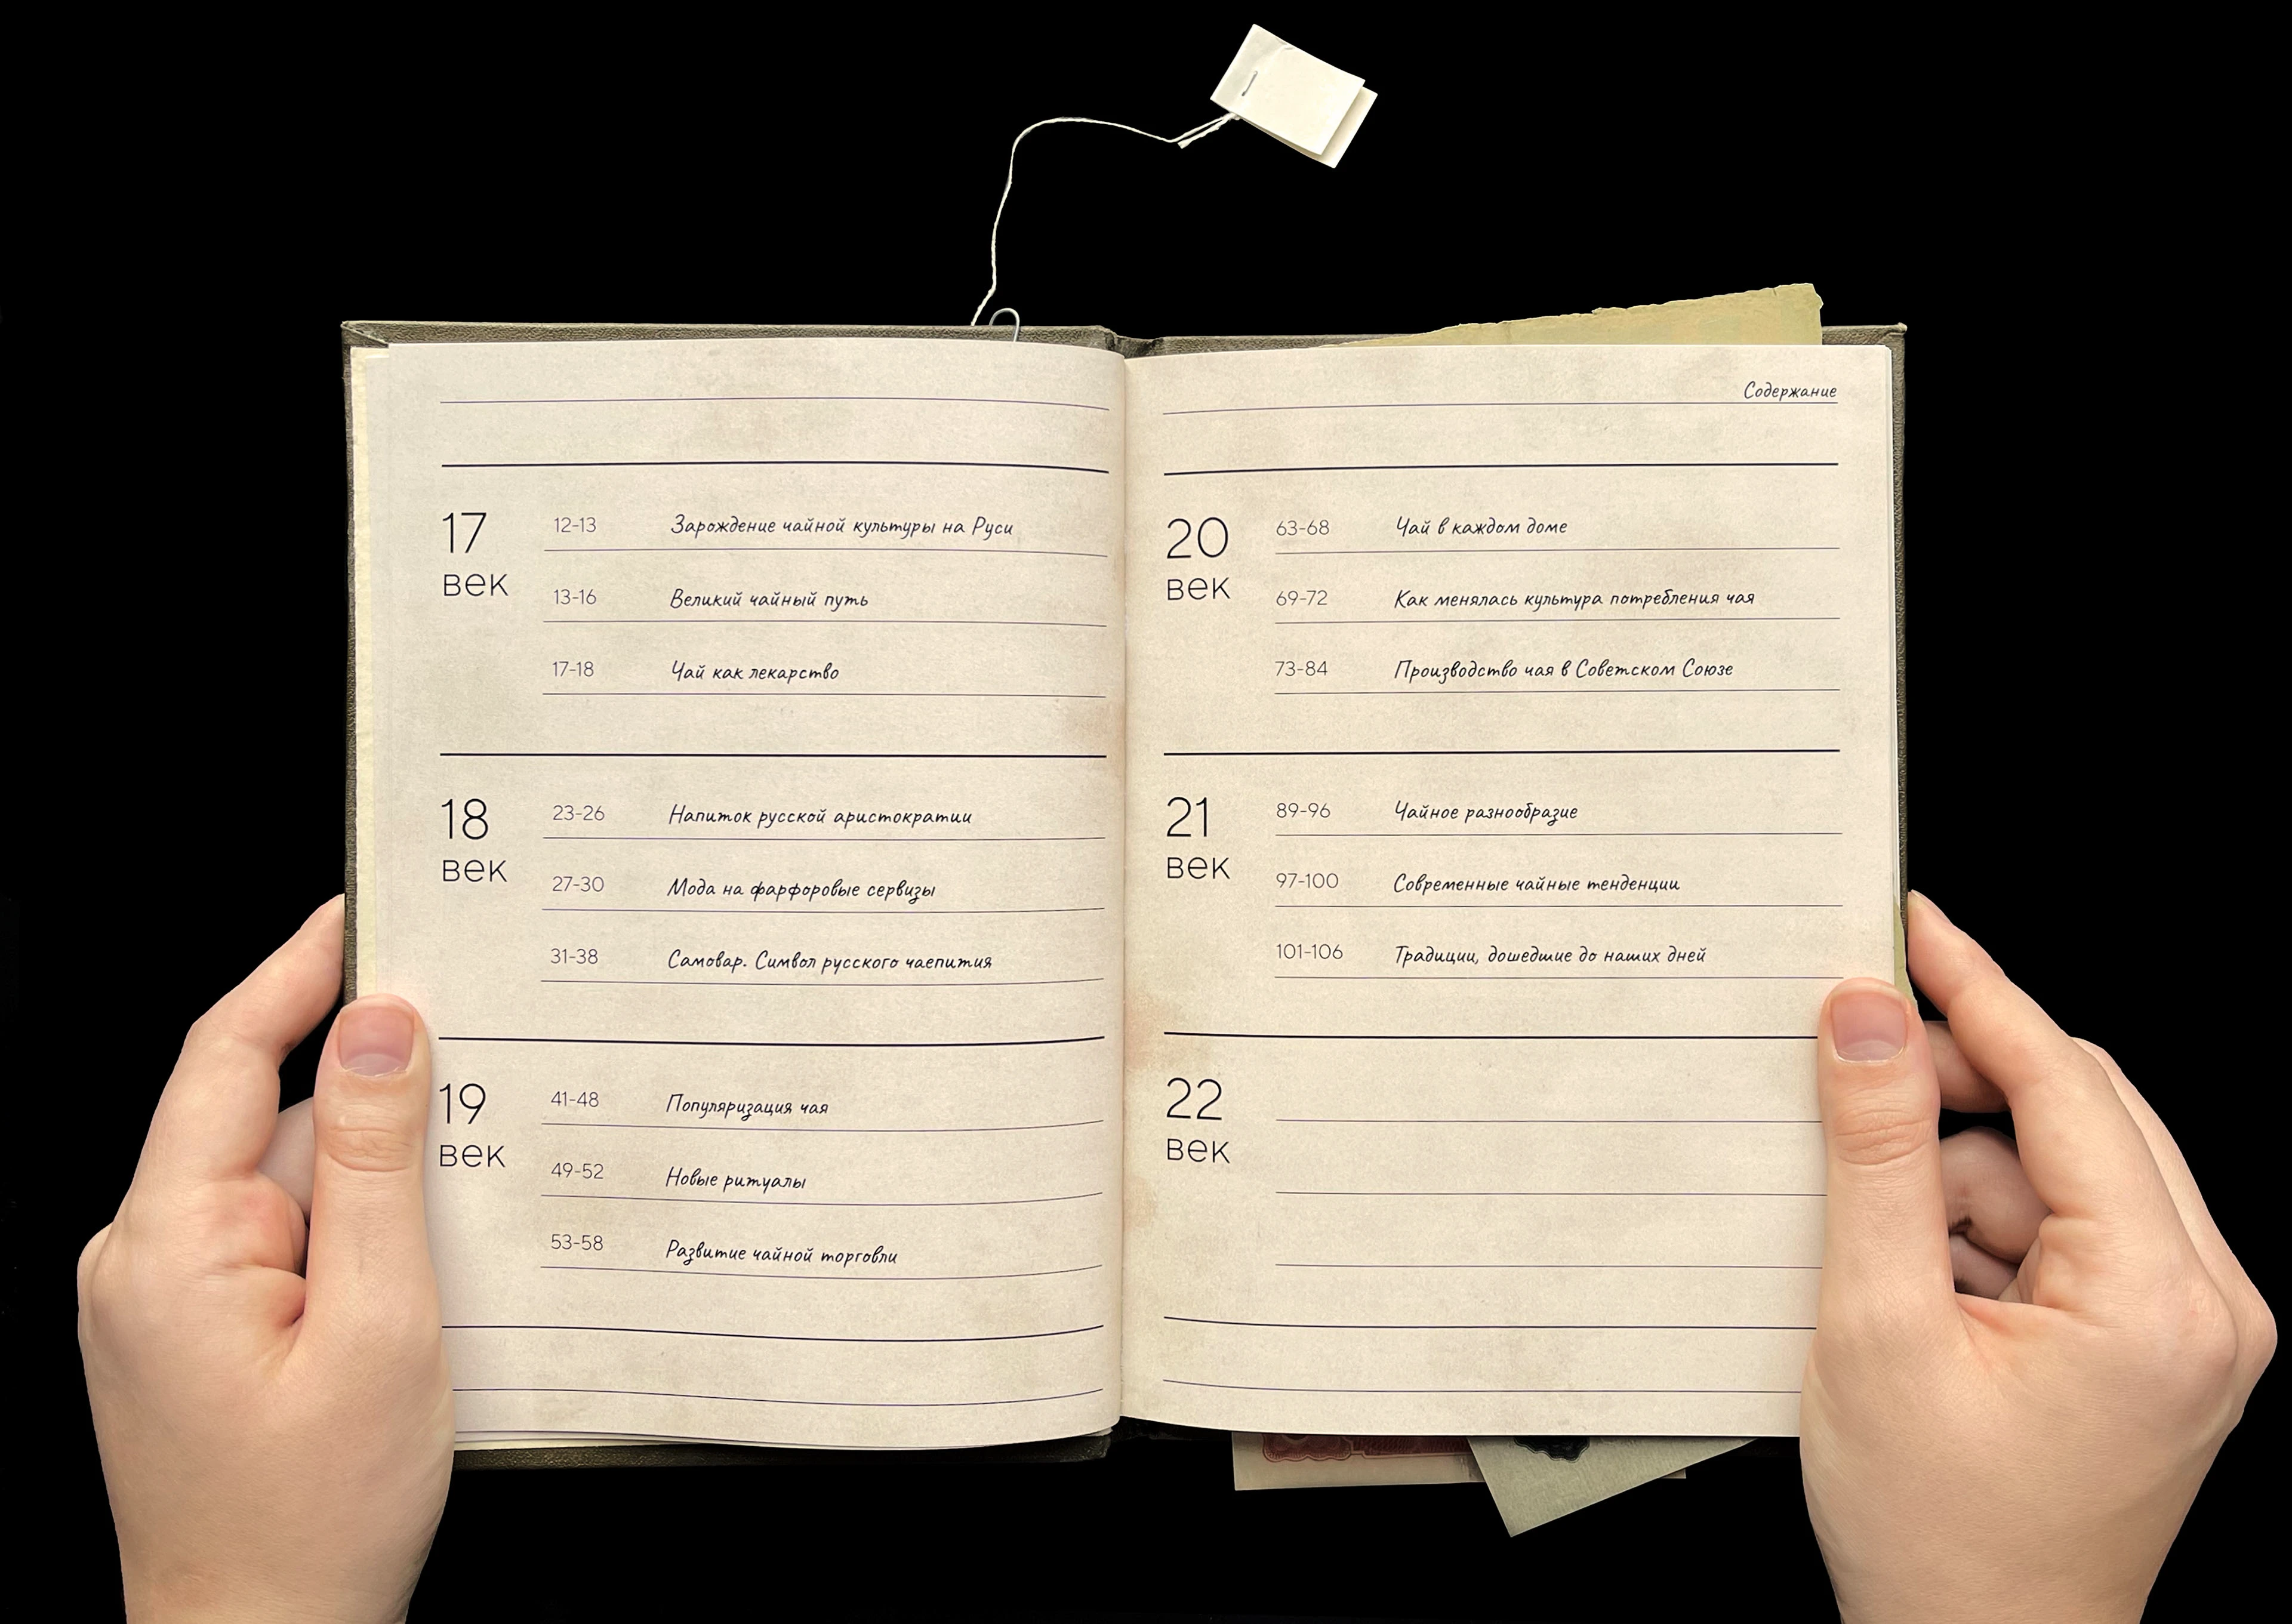 17 век
12-13 Зарождение чайной культуры на Руси
13-16 Великий чайный путь
17-18 Чай как лекарство
18 век
23-26 Напиток русской аристократии
27-30 Мода на фарфоровые сервизы
31-38 Самовар. Символ русского чаепития
19 век
41-48 Популяризация чая
49-52 Новые ритуалы
53-58 Развитие чайной торговли
Содержание
20 век
63-68 Чай в каждом доме
69-72 Как менялась культура потребления чая
73-84 Производство чая в Советском Союзе
21 век
89-96 Чайное разнообразие
97-100 Современные чайные тенденции
101-106 Традиции, дошедшие до наших дней
22 век